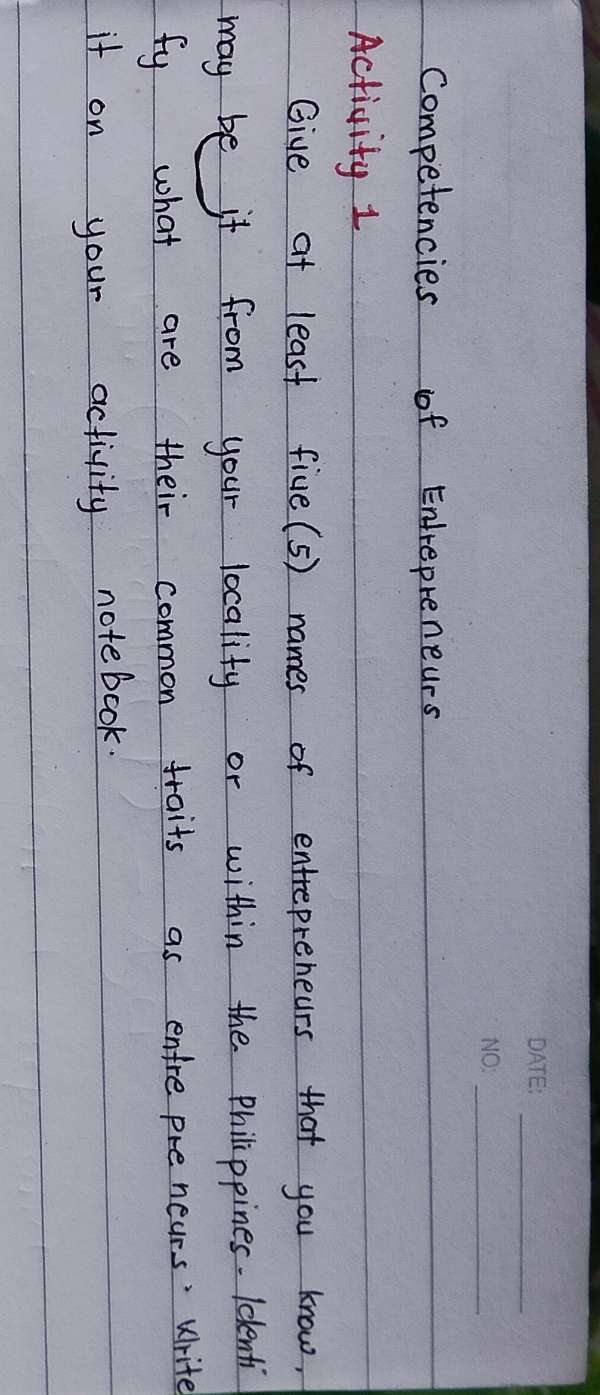 DATE:
NO.
Competencies of Entrepreneurs
Activity 1
Give at least five (5) names of entrepreneurs that you know,
may be it from your locality or within the Philippines. Identi
fy what are their common traits as entrepreneurs. Write
it on your activity notebook.